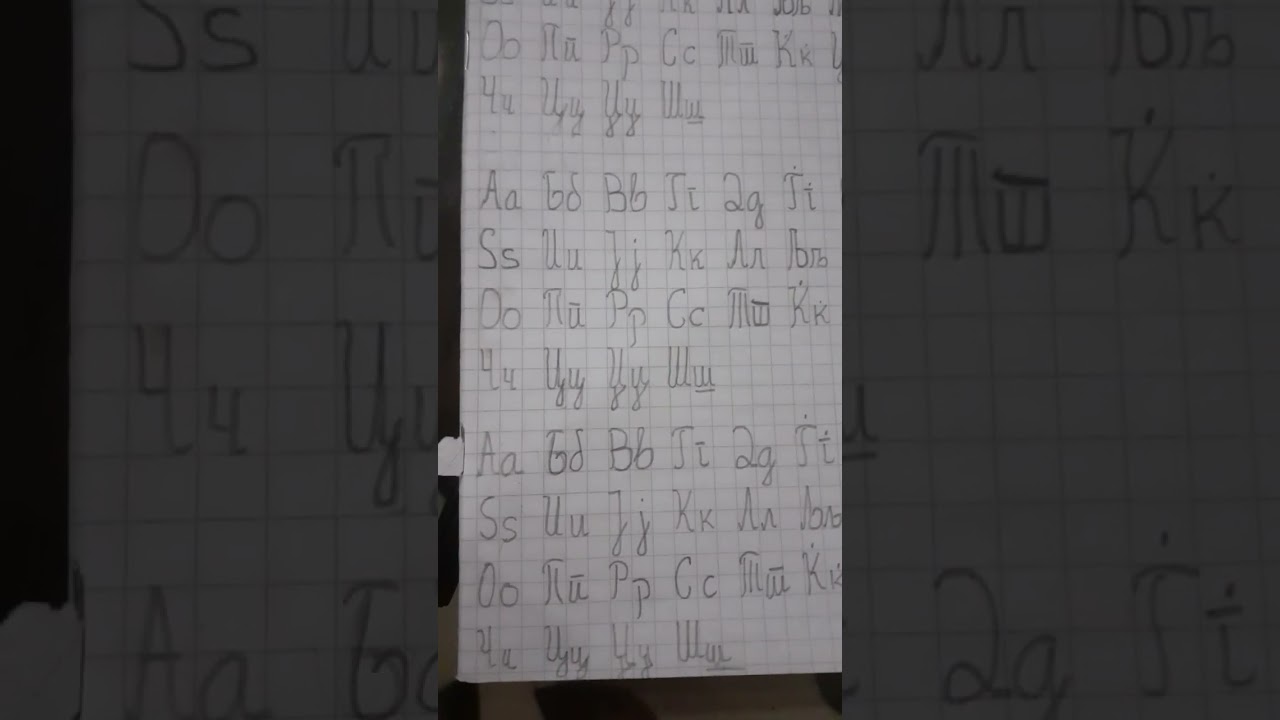 Ѕѕ Ии Јј Кк Лл Љљ
Оо Пп Рр Сс Тт Ќќ
Чч Џџ Џџ Шш
Аа Бб Вв Гг Дд Ѓѓ
Ѕѕ Ии Јј Кк Лл Љљ
Оо Пп Рр Сс Тт Ќќ
Чч Џџ Џџ Шш
Аа Бб Вв Гг Дд Ѓѓ
Ѕѕ Ии Јј Кк Лл Љљ
Оо Пп Рр Сс Тт Ќќ
Чч Џџ Џџ Шш